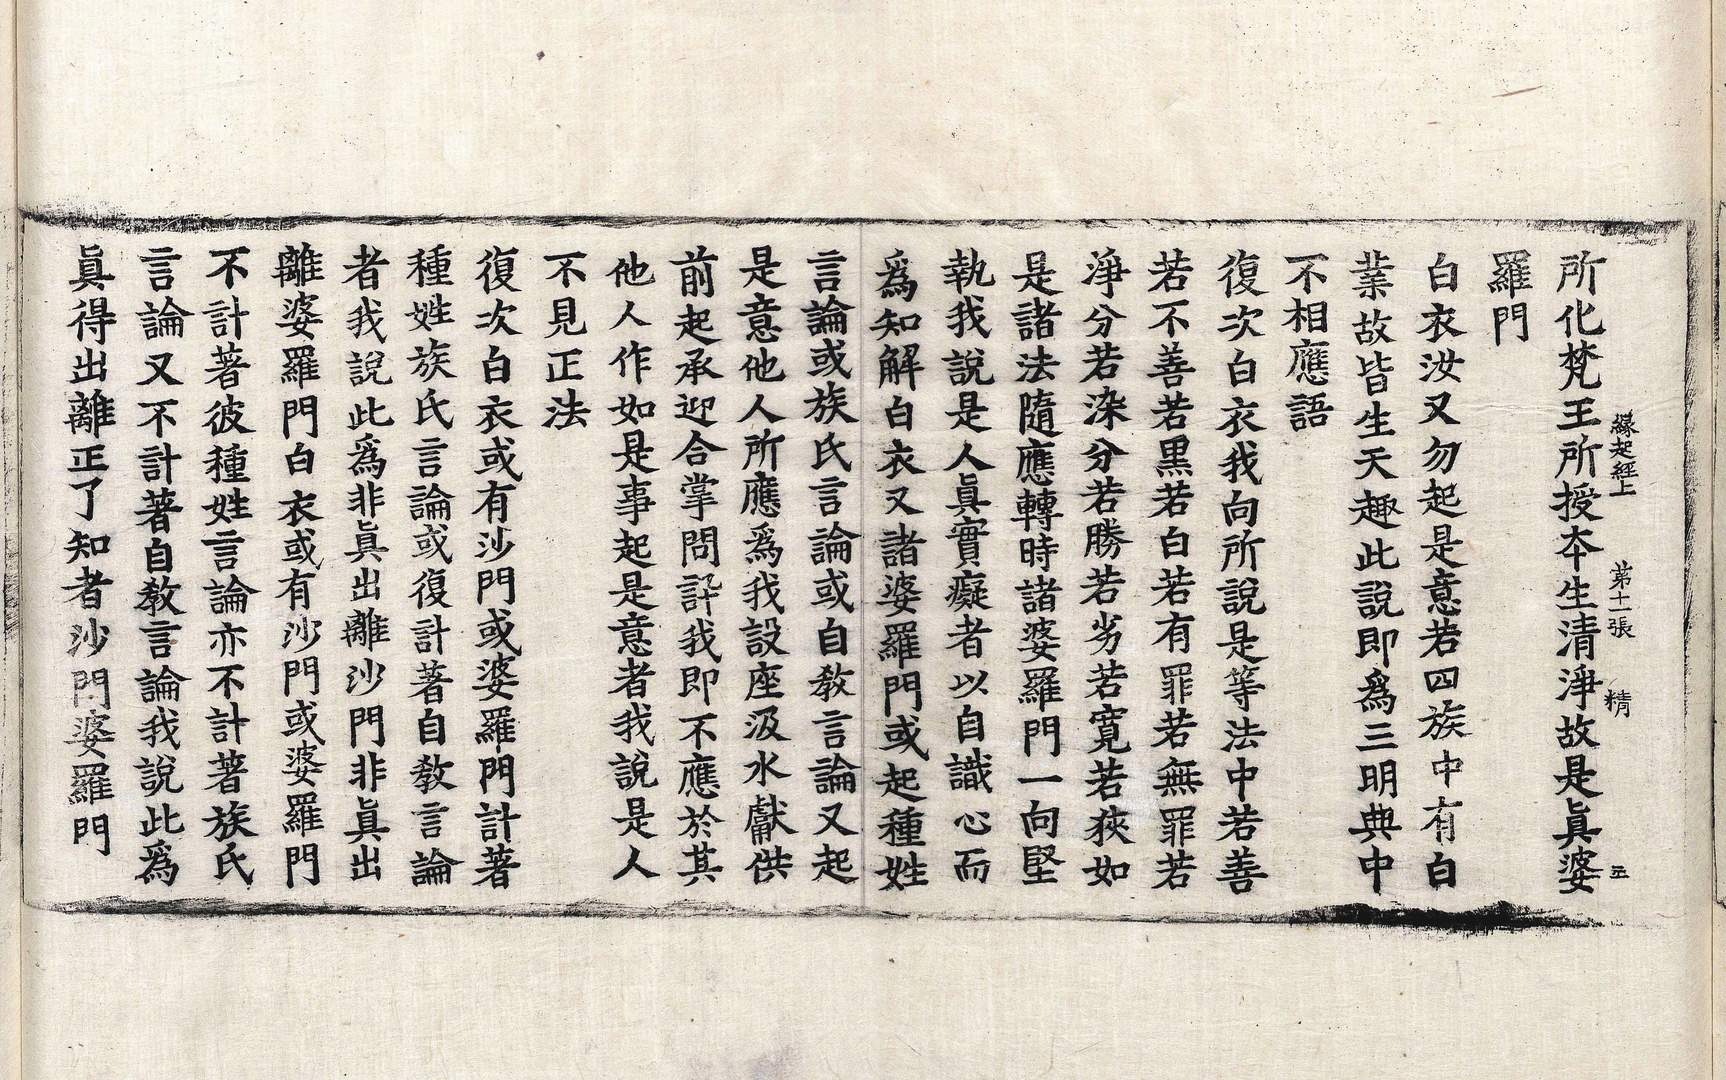 緣起經上 第十一張 精
所化梵王所授夲生清淨故是眞婆
羅門
白衣汝又勿起是意若四族中有白
業故皆生天趣此說即爲三明典中
不相應語
復次白衣我向所說是等法中若善
若不善若黒若白若有罪若無罪若
淨分若染分若勝若劣若寬若狹如
是諸法隨應轉時諸婆羅門一向堅
執我說是人眞實癡者以自識心而
爲知解白衣又諸婆羅門或起種姓
言論或族氏言論或自教言論又起
是意他人所應爲我設座汲水獻供
前起承迎合掌問訊我即不應於其
他人作如是事起是意者我說是人
不見正法
復次白衣或有沙門或婆羅門計著
種姓族氏言論或復計著自教言論
者我說此爲非眞出離沙門非眞出
離婆羅門白衣或有沙門或婆羅門
不計著彼種姓言論亦不計著族氏
言論又不計著自教言論我說此爲
眞得出離正了知者沙門婆羅門